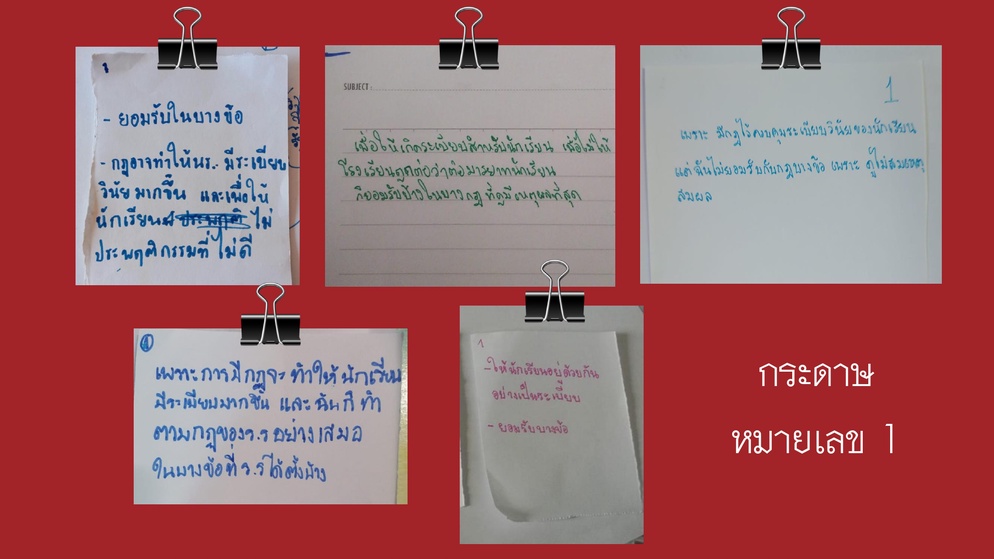 1
- ยอมรับในบางข้อ
- กฎอาจทำให้นร. มีระเบียบ
วินัยมากขึ้น และเพื่อให้
นักเรียน ไม่
ประพฤติกรรมที่ไม่ดี
SUBJECT:
เพื่อให้เกิดระเบียบสำหรับนักเรียน เพื่อไม่ให้
โรงเรียนถูกต่อว่าต่อมารยาทนักเรียน
ก็ยอมรับบ้างในบางกฎ ที่ดูมีเหตุผลที่สุด
1
เพราะ มีกฎไว้ควบคุมระเบียบวินัยของนักเรียน
แต่ฉันไม่ยอมรับกับกฎบางข้อ เพราะ ดูไม่สมเหตุ
สมผล
1
เพราะการมีกฎจะ ทำให้นักเรียน
มีระเบียบมากขึ้น และฉันก็ ทำ
ตามกฎของร.ร อย่างเสมอ
ในบางข้อที่ ร.ร ได้ตั้งบ้าง
1
-ให้นักเรียนอยู่ด้วยกัน
อย่างเป็นระเบียบ
- ยอมรับบางข้อ
กระดาษ
หมายเลข 1